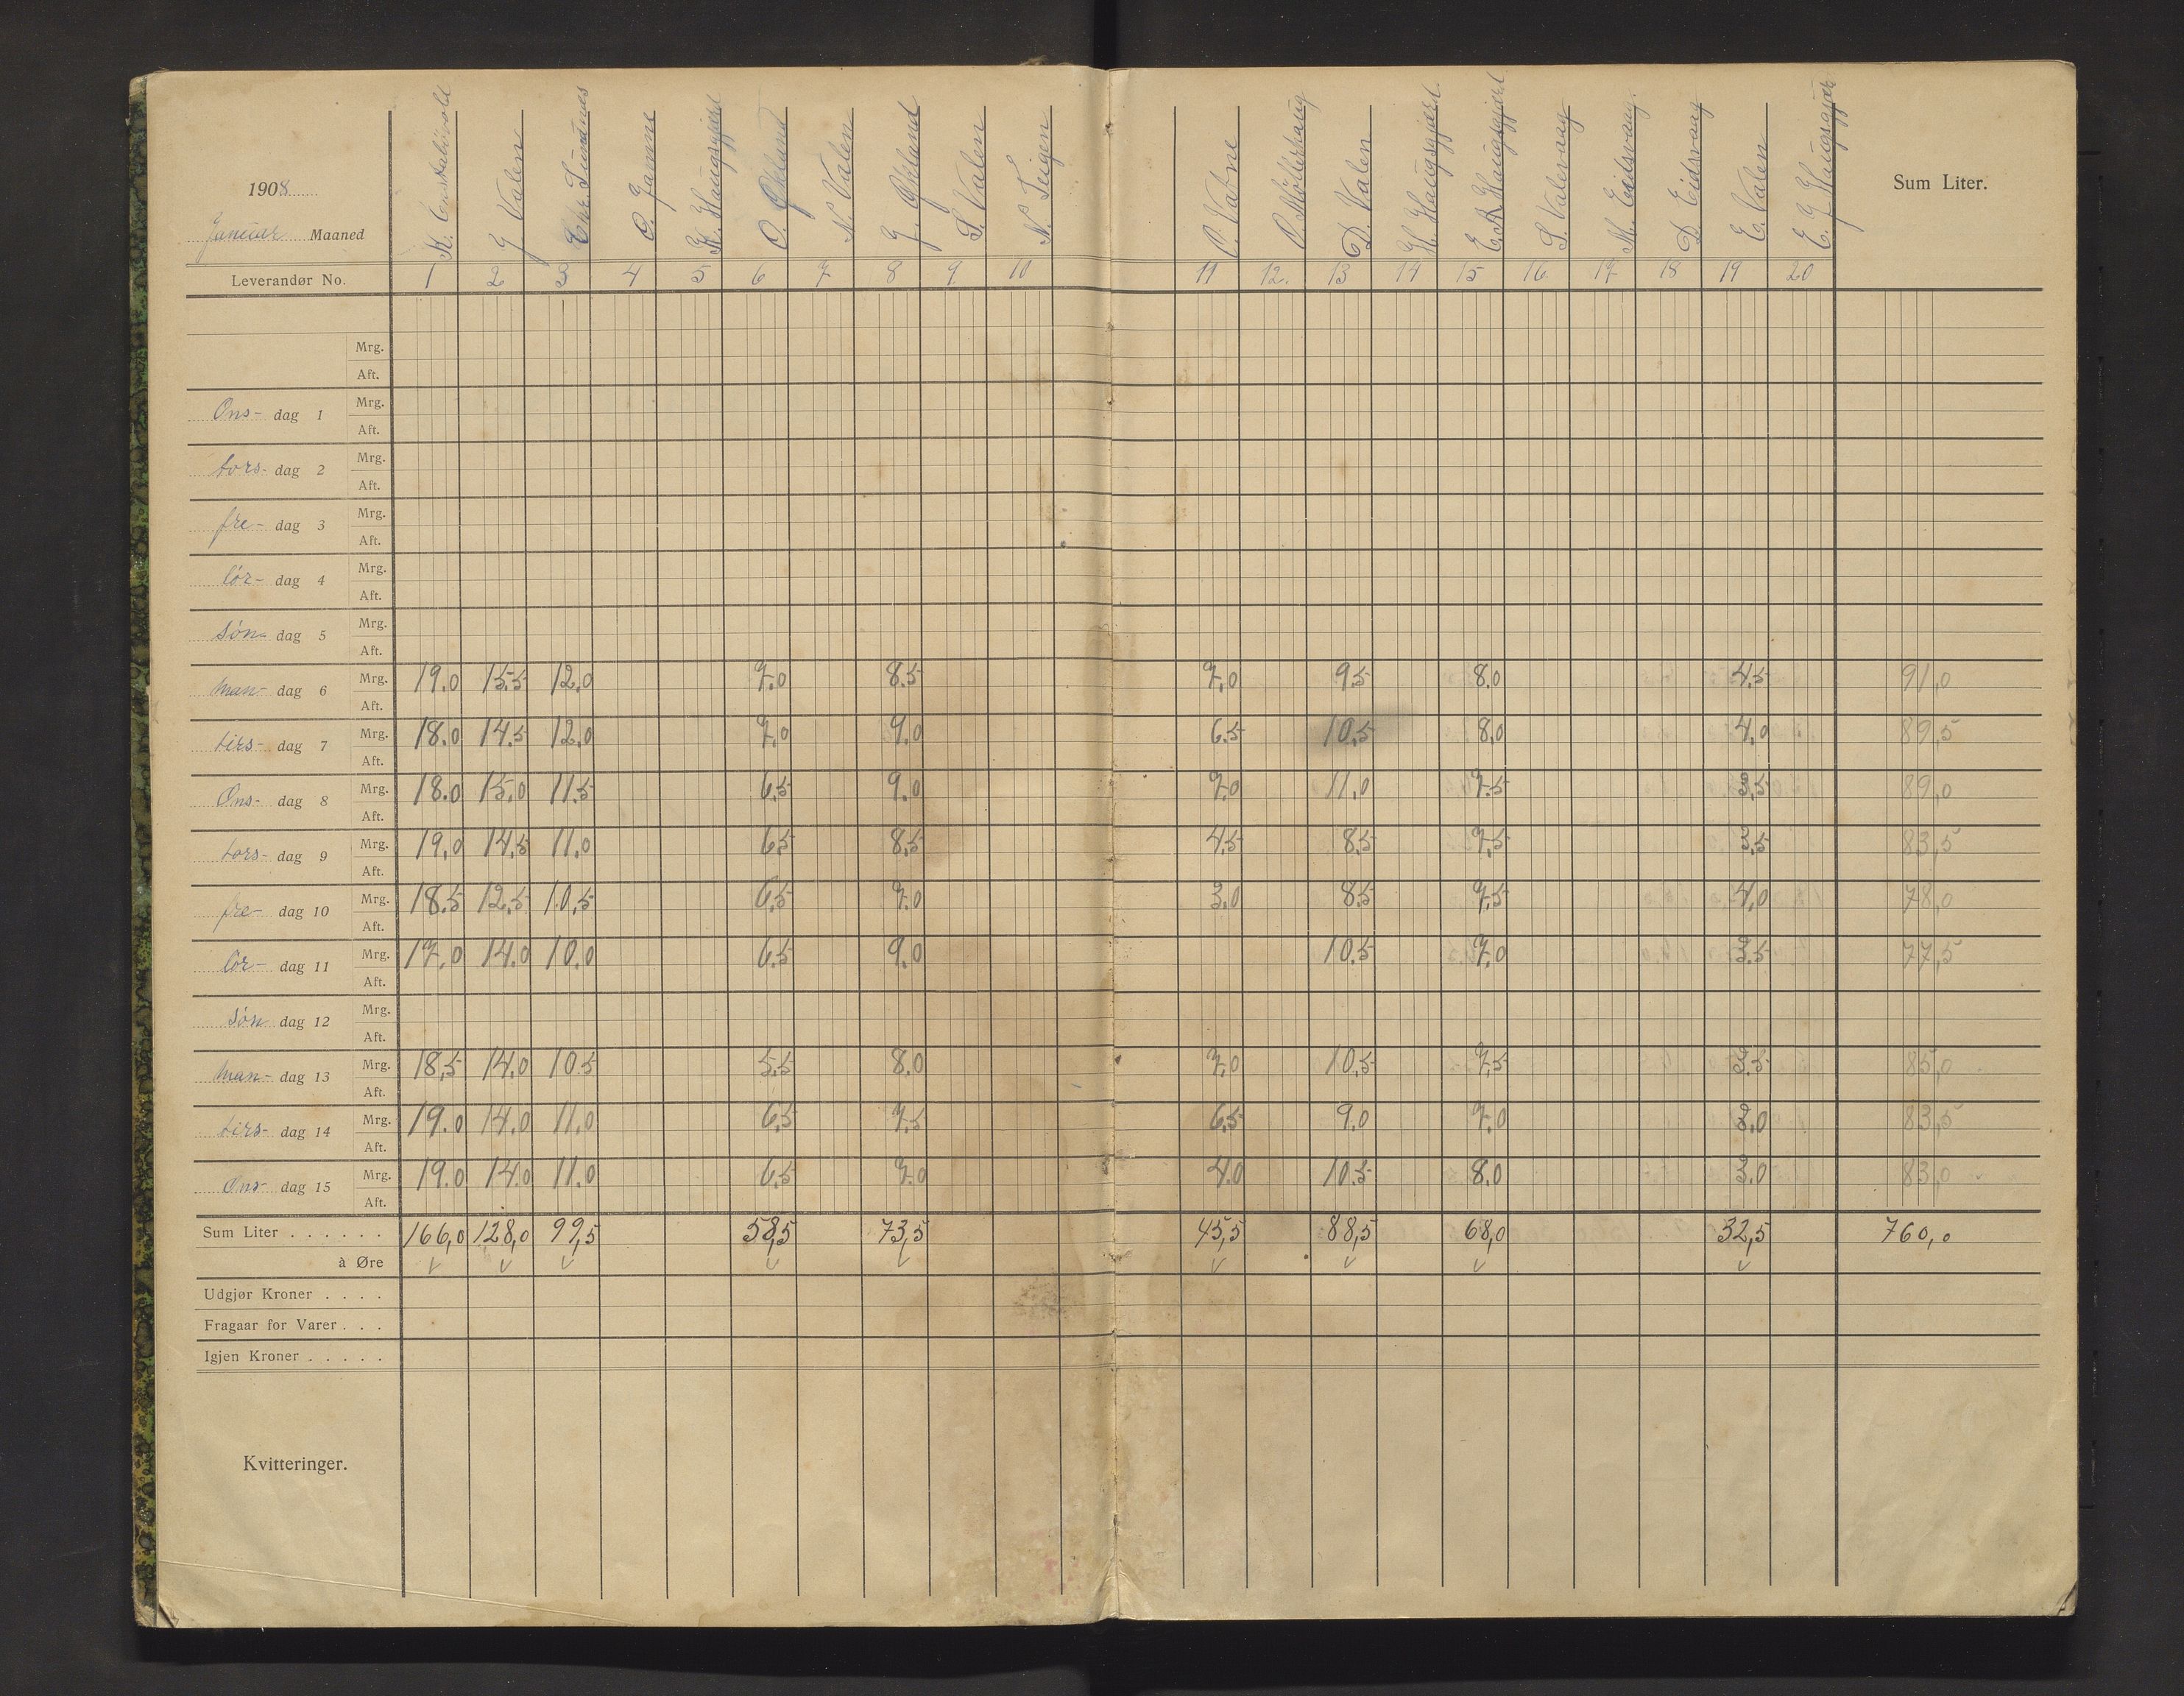 1908
Januar Maaned
K. Enstabövold
J Valen
Chr. Sundnes
O. Janne
K. Haugsgjærd
O. Økland
N. Valen
J. Økland
S. Valen
N. Teigen
O. Vatne
O. Mölerhaug
D. Valen
H. Haugsgjærd.
E. K Haugsgjærd
S. Valevaag
M. Eidsvaag.
D. Eidsvaag
E. Valen
E. J. Haugsgjær
Sum Liter.
Leverandør No. 1 2 3 4 5 6 7 8 9. 10 11 12. 13 14 15 16 17 18 19 20
Mrg.
Aft.
Ons- dag 1 Mrg.
Aft.
tors- dag 2 Mrg.
Aft.
fre- dag 3 Mrg.
Aft.
lör- dag 4 Mrg.
Aft.
sön- dag 5 Mrg.
Aft.
man- dag 6 Mrg. 19.0 15.5 12.0 7.0 8.5 7.0 9.5 8.0 4.5 91,0
Aft.
tirs- dag 7 Mrg. 18.0 14.5 12.0 7.0 9.0 6.5 10.5 8.0 4.0 89,5
Aft.
Ons- dag 8 Mrg. 18.0 15.0 11.5 6.5 9.0 7.0 11.0 7.5 3.5 89,0
Aft.
tors- dag 9 Mrg. 19.0 14.5 11.0 6.5 8.5 4.5 8.5 7.5 3.5 83,5
Aft.
fre- dag 10 Mrg. 18.5 12.5 10.5 6.5 7.0 3.0 8.5 7.5 4.0 78,0
Aft.
lör- dag 11 Mrg. 17.0 14.0 10.0 6.5 9.0 10.5 7.0 3.5 77,5
Aft.
sön dag 12 Mrg.
Aft.
man- dag 13 Mrg. 18.5 14.0 10.5 5.5 8.0 7.0 10.5 7.5 3.5 85,0
Aft.
tirs- dag 14 Mrg. 19.0 14.0 11.0 6.5 7.5 6.5 9.0 7.0 3.0 83,5
Aft.
Ons- dag 15 Mrg. 19.0 14.0 11.0 6.5 7.0 4.0 10.5 8.0 3.0 83,0
Aft.
Sum Liter . . . . . . 166,0 128,0 99,5 58,5 73,5 45,5 88,5 68,0 32,5 760,0
à Øre
Udgjør Kroner . . . .
Fragaar for Varer . . .
Igjen Kroner . . . . .
Kvitteringer.